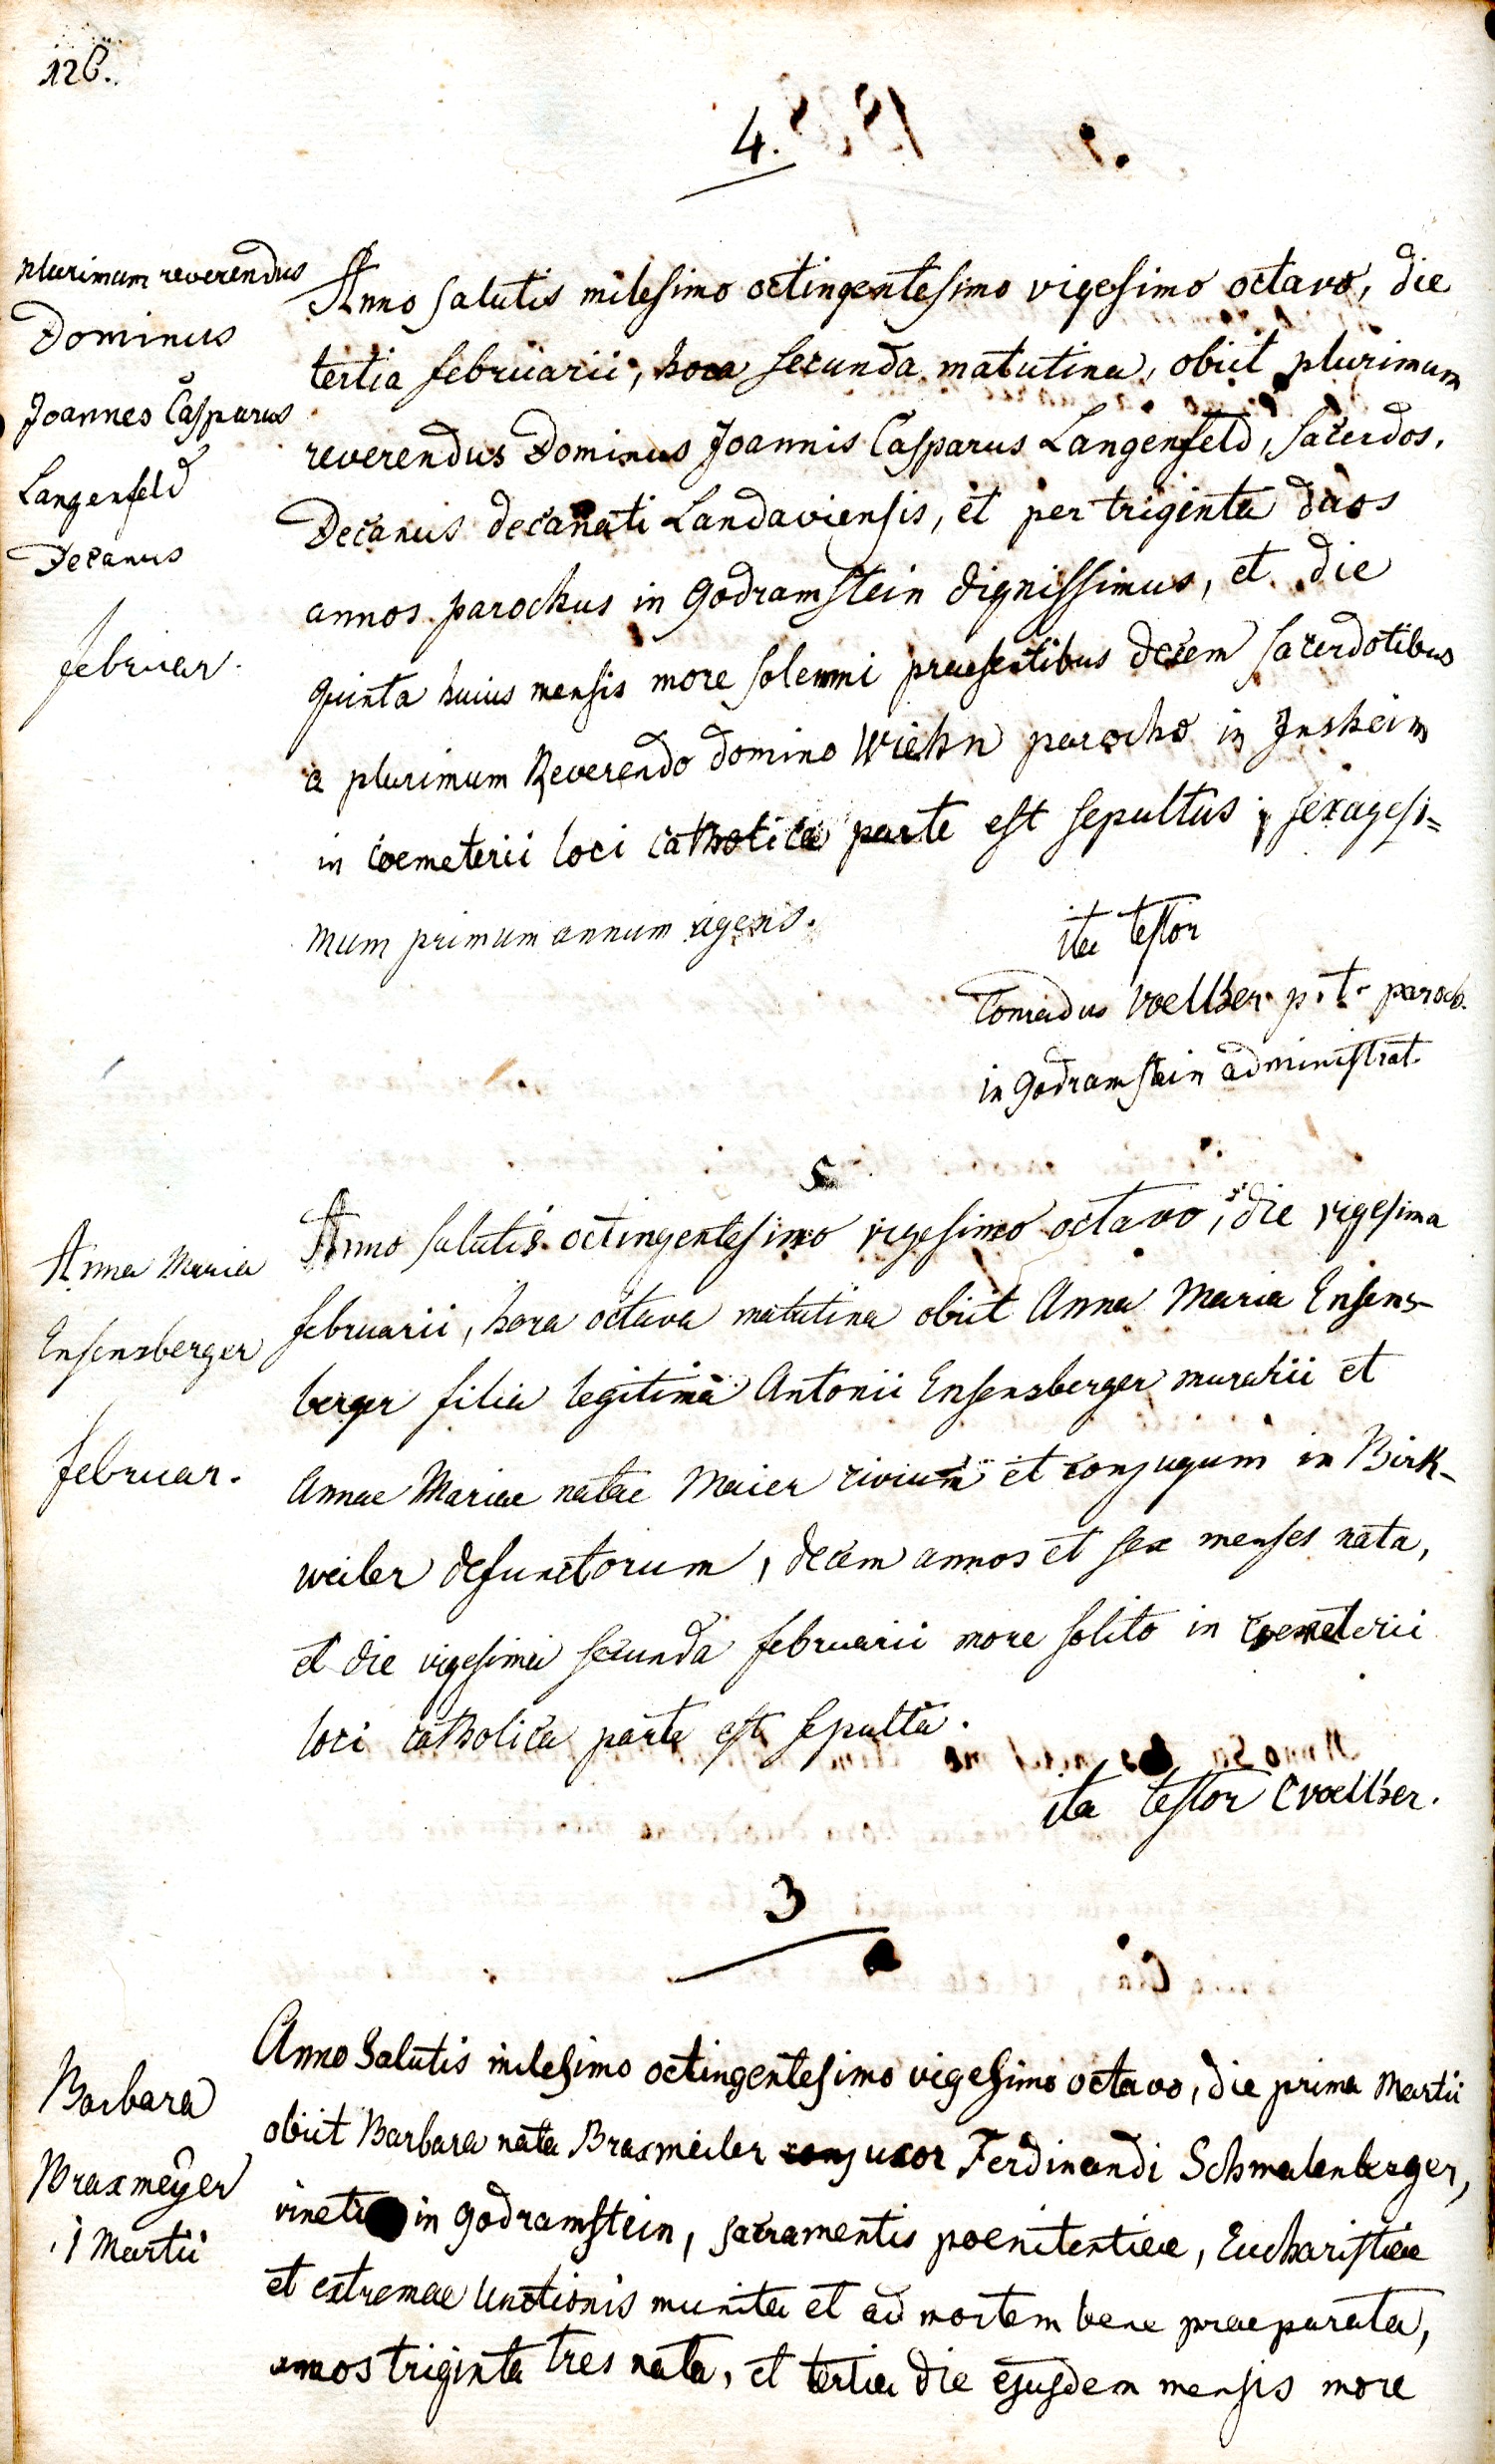 126.
4.
plurimum reverendus
Dominus
Joannes Casparus
Langenfeld
Decanus
februar.
Anno salutis milesimo octingentesimo vigesimo octavo, die
tertia februarii, hora secunda matutina, obiit plurimum
reverendus Dominus Joannis Casparus Langenfeld, sacerdos,
Decanus decanati Landaviensis, et per triginta duos
annos parochus in Godramstein dignissimus, et die
quinta huius mensis more solemni praesentibus decem sacerdotibus
a plurimum Reverendo domino Wiehn parocho in Insheim
in coemeterii loci catholica parte est sepultus; sexagesi=
mum primum annum agens.
ita testor
Conradus Voelker p. t. paroch.
in godramstein administrat.
5
Anna Maria
Ensensberger
februar.
Anno salutis octingentesimo vigesimo octavo, die vigesima
februarii, hora octava matutina obiit Anna Maria Ensens-
berger filia legitima Antonii Ensensberger murarii et
Annae Mariae natae Maier civium et conjugum in Birk-
weiler defunctorum, decem annos et sex menses nata,
et die vigesima secunda februarii more solito in coemeterii
loci catholica parte est sepulta.
ita testor CVoelker.
3
Barbara
Braxmeyer
1 Martii
Anno Salutis milesimo octingentesimo vigesimo octavo, die prima Martii
obiit Barbara nata Braxmeiler conj uxor Ferdinandi Schmalenberger,
in godramstein, sacramentis poenitentiae, Eucharistiae
et extremae Unctionis munita et ad mortem bene praeparata,
annos triginta tres nata, et tertia die ejusdem mensis more